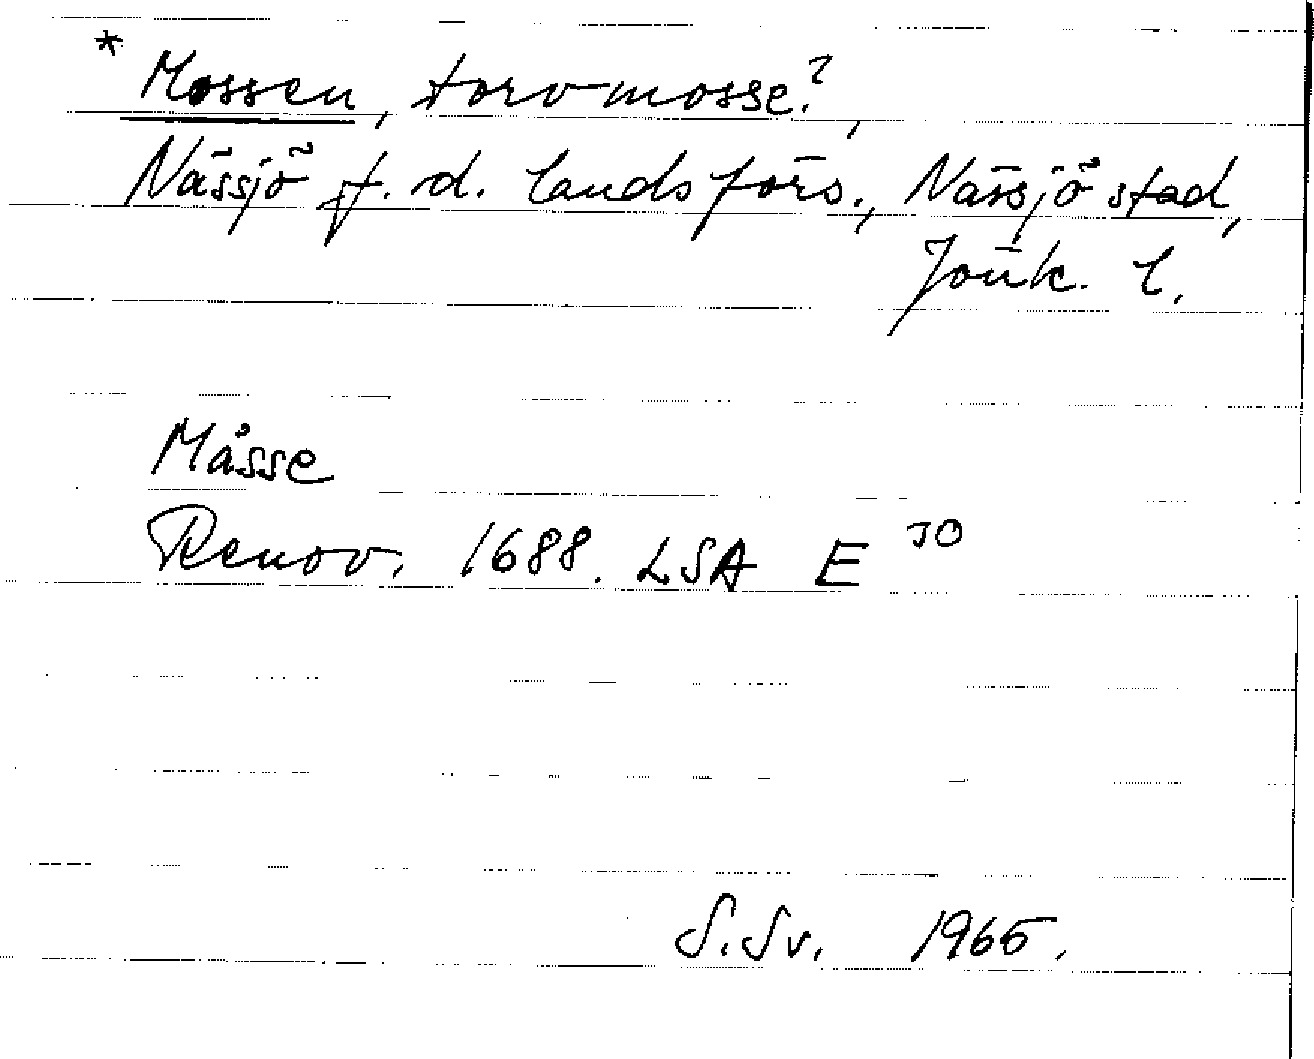 * Mossen, torvmosse?,
Nässjö f.d. landsförs., Nässjö stad,
Jönk. l.
Måsse
Renov. 1688. LSA E 70
S.Sv. 1965.